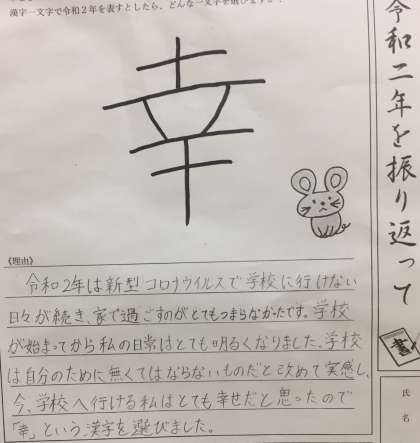 漢字一文字で令和2年を表すとしたら、どんな一文字を選びますか？
幸
令和二年を振り返って
《理由》
令和2年は新型コロナウイルスで学校に行けない
日々が続き、家で過ごすのがとてもつまらなかったです。学校
が始まってから私の日常はとても明るくなりました。学校
は自分のために無くてはならないものだと改めて実感し、
今、学校へ行ける私はとても幸せだと思ったので
「幸」という漢字を選びました。
書
氏名